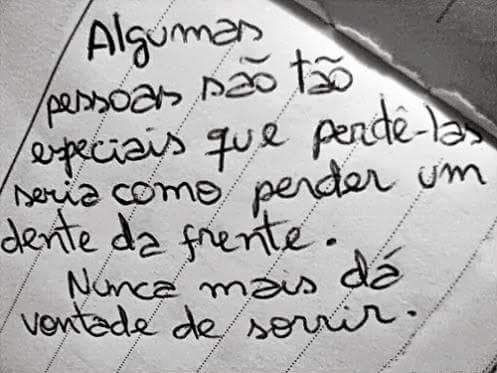 Algumas
pessoas são tão
especiais que perdê-las
seria como perder um
dente da frente.
Nunca mais dá
vontade de sorrir.